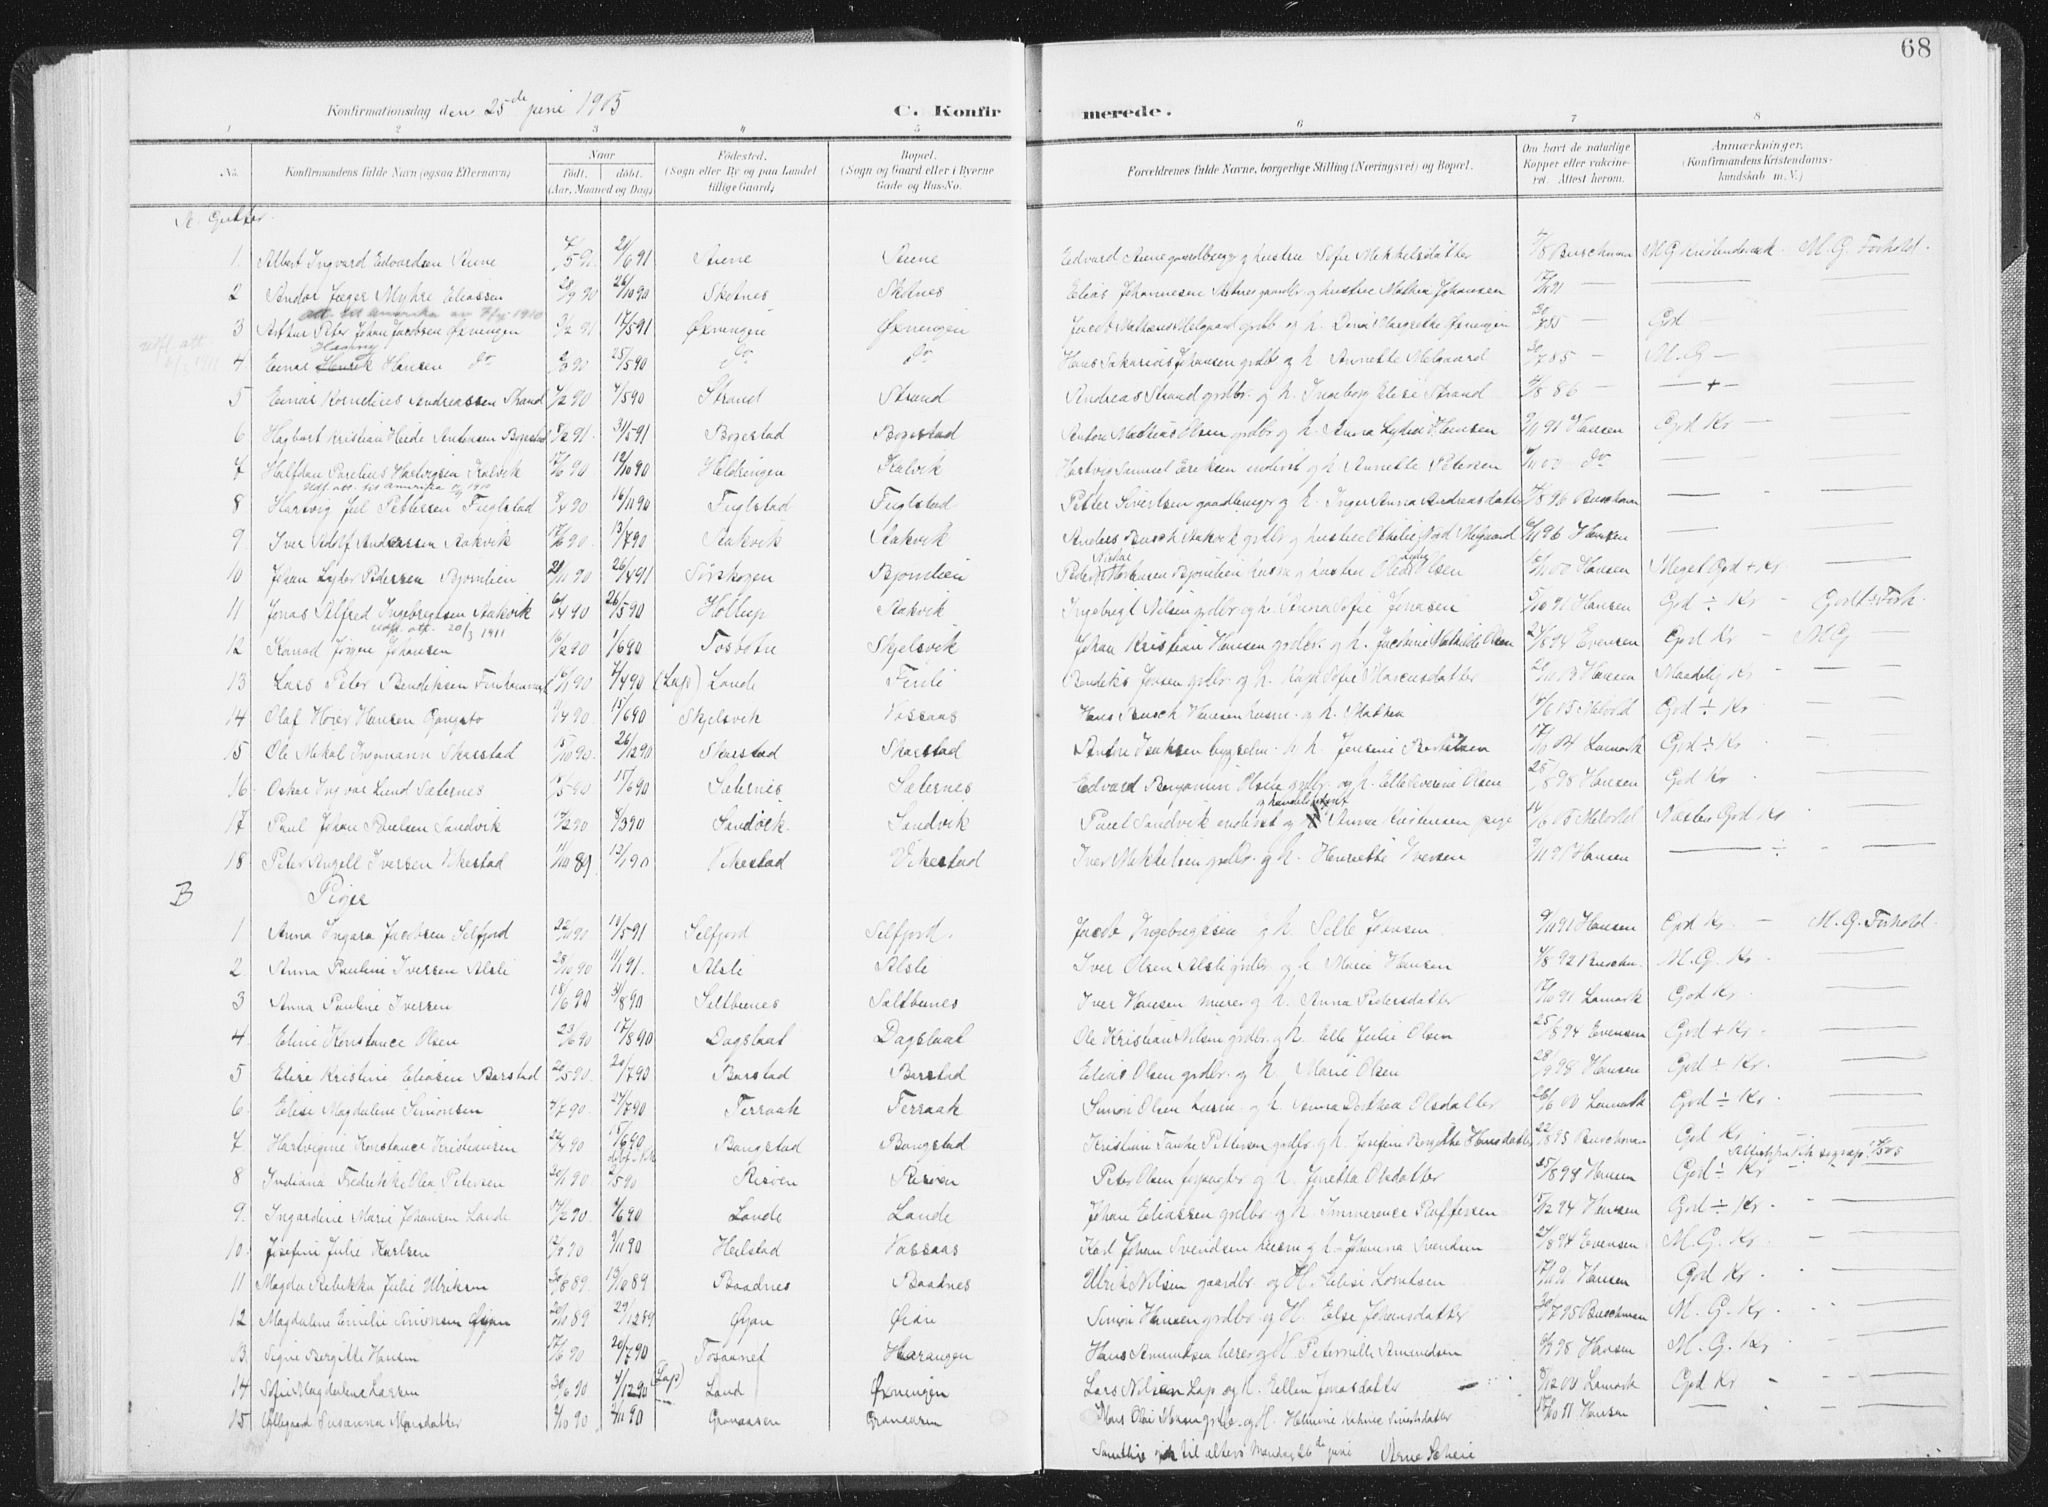 68
Konfirmationsdag den 25de juni 1905 C. Konfirmerede.
1 2 3 4 5 6 7 8
No. Konfirmandens fulde Navn (ogsaa Efternavn) Naar Født. døbt. (Aar, Maaned og Dag) Fødested. (Sogn eller By og paa Landet tillige Gaard) Bopæl. (Sogn og Gaard eller i Byerne Gade og Hus-No. Forældrenes fulde Navne, borgerlige Stilling (Næringsvei) og Bopæl. Om havt de naturlige Kopper eller vaccineret. Attest herom. Anmærkninger. (Konfirmandens Kristendomskundskab m. V.)
A. Gutter
1. Albert Ingvard Edvardsen Stene 7/5 91 21/6 91 Stene Stene Edvard Stene gaardbruger g hustru Sofie Mikkelsdatter 7/8 Buschman M. G. Forhold.
2 Andor Jæger Myhre Eliassen 28/9 90 26/10 90 Skotnes Skotnes Elias Johannesen Skotnes gaardbr. g hustru Mathea Johansen
att. til Amerika 1910
3 Arthur Peter Johan Jacobsen Øxningen 3/2 91 17/5 91 Øxningen Øxningen Jacob Mathæus Melgaard grdbr og h. Dorus Margrethe Øxningen God —
Henny
4 Einar Henrik Hansen do 25/5 90 do do Hans Sakarias Johansen grdbr og h. Annette Melgaard 30/7 85 — M. G —
5 Einar Kornelius Andreassen Strand 4/2 90 4/5 90 Strand Strand Andreas Strand grdbr. og h. Ingeborg Elise Strand 4/8 86 — — + —
6 Hagbart Kristian Heide Antonsen Bogestad 8/2 91. 31/5 91 Bogestad Bogestad Anton Mathias Olsen grdbr og h. Anna Lydia Hansen 9/11 91 Hansen God Kr —
7 Halfdan Parelius Hartvigsen Kalvik 17/6 90 12/10 90 Heldringen Kalvik Hartvig Samuel Eriksen inderst og h Annette Petersen do
Udfl. att. til Amerika 1910
8 Hartvig Jul Pettersen Fuglstad 8/4 90 16/11 90 Fuglstad Fuglstad Petter Sivertsen gaardbruger og h. Inger Anna Andreasdatter 4/8 96 Buschman
9 Iver Adolf Andersen Aakvik 17/6 90 13/7 90 Aakvik Aakvik Andreas Busch Aakvik grdbr og hustru Othelie Melgaard 96 Hansen
10 Johan Lyder Pedersen Bjørnlien 21/11 90 26/4 91 Sørskogen Bjørnlien Bjørnlien husm g hustru Olsen Hansen Meget God + Kr
11 Jonas Alfred Ingebregtsen Aakvik 6/4 90 26/5 90 Hollup Aakvik Ingebregt Nilsen grdbr og h. Anna Sofie Jonasen 5/10 91 Hansen God ÷ Kr
Udfl. att. 20/3 1911
12 Konrad Jørgen Johansen 16/2 90 1/6 90 Tosbotn Skjelsvik Johan Kristian Hansen grdbr. og h. Jacobine Mathilde Olsen 27/8 94 Evensen God Kr — M G
13 Lars Peter Bendiksen 16/1 90 7/4 90 (Lap) Lande Finli Bendiks Jonsen grdbr. og h. Kaja Sofie Marcusdatter Hansen Maadelig Kr
14 Olaf Høier Hansen Gangstø 9/4 90 15/6 90 Skjelsvik Vassaas Hans Busch Hansen husm. og h. Mathea 14/6 05 Melvold God ÷ Kr
15 Ole Mikal Ingemann Skarstad 15/10 90. 26/12 90 Skarstad Skarstad Andre Isaksen bygselm. h h. Jensine 17/10 04 Lamark God ÷ Kr
16. Oskar Ingvar Lund Sæternes 15/5 90 15/6 90 Sæternes Sæternes Edvard Benjamin Olsen grdbr. og h. Elle Severine Olsen 25/8 98 Hansen God Kr
17 Paul Johan Paulsen Sandvik 17/2 90 9/3 90 Sandvik. Sandvik Paul Sandvik inderst og Anna Kristensen pige 14/6 05 Melvold Næsten God Kr
18 Peter Angell Iversen Vikestad 11/10 89 12/1 90 Vikestad Vikestad Iver Mikkelsen grdbr. og h. Henriette Iversen 9/11 91 Hansen
B Piger
1 Anna Ingara Jacobsen Selfjord 22/11 90 18/5 91 Selfjord Selfjord. Jacob Ingebrigtsen g h. Selle Jonsen. 9/11 91 Hansen God Kr — M. G. Forhold.
2 Anna Pauline Iversen Alsli 28/10 90 11/1 91. Alsli Alsli Iver Olsen Alsli grdbr. og h Marie Hansen 4/8 92 Buschm. M. G. Kr
3 Anna Pauline Iversen 18/6 90 31/8 90 Saltbunes Saltbunes Iver Hansen murer g h. Anna Pedersdatter 17/10 91 Lamark God Kr
4 Eline Konstance Olsen 23/6 90 17/8 90 Dagslaat Dagslaat Ole Kristian Nilsen grdbr. og h. Elle Julie Olsen 25/8 94 Evensen God + Kr.
5 Elise Kristine Eliasen Barstad 20/5 90. 20/7 90 Barstad Barstad Elias Olsen grdbr. og h Marie Olsen 28/9 98 Hansen God ÷ Kr.
6. Elise Magdalene Simonsen 4/7 90. 27/7 90 Terraak Terraak Simon Olsen husm. og h. Anna Dorthea Olsdatter 26/6 00 Lamark God ÷ Kr.
7. Hartvigine Konstance Kristiansen 22/4 90 15/6 90 Bangstad Bangstad Kristian Tanke Pettersen grdbr. og h. Josefine Bergitte Hansdatter 22/8 95 Buschman God Kr
8 Indiana Fredrikke Olea Petersen 20/1 90. 2/5 90 Risøen Risøen Peter Olsen g h Jonetta Olsdatter 25/8 98 Hansen God ÷ Kr
9. Ingardine Marie Johansen Lande 14/2 90 8/6 90 Lande Lande Johan Eliassen grdbr. og h. Immerence Raffelsen 5/12 94 Hansen God ÷ Kr.
10. Josefine Julie Karlsen 12/9 90 9/11 90 Heilstad Vassaas Karl Johan Svendsen husm. g h. Johanna Svendsen 27/8 94 Evensen M. G. Kr.
11 Magda Rebikka Julie Ulriksen 30/8 89. 13/10 89 Baadnes Baadnes Ulrik Nilsen gaardbr. og H. Elise Lorntsen 17/11 91 Hansen God Kr
12 Magdalene Emelie Simonsen Øyan 20/10 89 29/12 89 Øyan Øian Simon Hansen grdbr. og H. Else Johansdatter 30/7 95 Buschman M. G. Kr
13. Signe Bergitte Hansen 17/6 90 20/7 90 Tosaunet Harangen Hans Amundsen og H. Peternille Amundsen 9/9 98 Hansen M. G. Kr
14 Sofie Magdalena Larsen 30/6 90 4/12 90 (Lap) Land Øxningen Lars Nilsen Lap og h. Ellen Jonasdatter 8/12 00 Lamark God Kr
15 Øllegaard Susanna Monsdatter 9/10 90 2/11 90 Granaasen Granaasen Mons Olai Monsen grdbr. og H. Helmine Katrine Sivertsdatter Hansen
Samtlige gik til alters Mandag 26de juni Arne Scheie